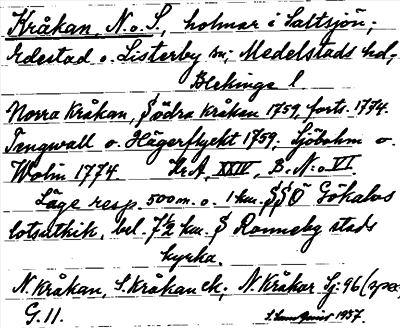 Kråkan, N. o. S., holmar i Saltsjön;
Edestad o. Listerby sn; Medelstads hd,
Blekinge l.
Norra Kråkan, Södra Kråkan 1759, forts. 1774.
Tengwall o. Hägerflycht 1759; Sjöbohm o.
Wolin 1774. Kr. A, XXIV, B. N:o VI.
Läge resp. 500 m. o. 1 km. SSÖ Gökalvs
lotsutkik, bel. 7½ km. S Ronneby stads
kyrka.
N. Kråkan, S. Kråkan ek; N. Kråkar Sj: 96
G. 11. 1937.